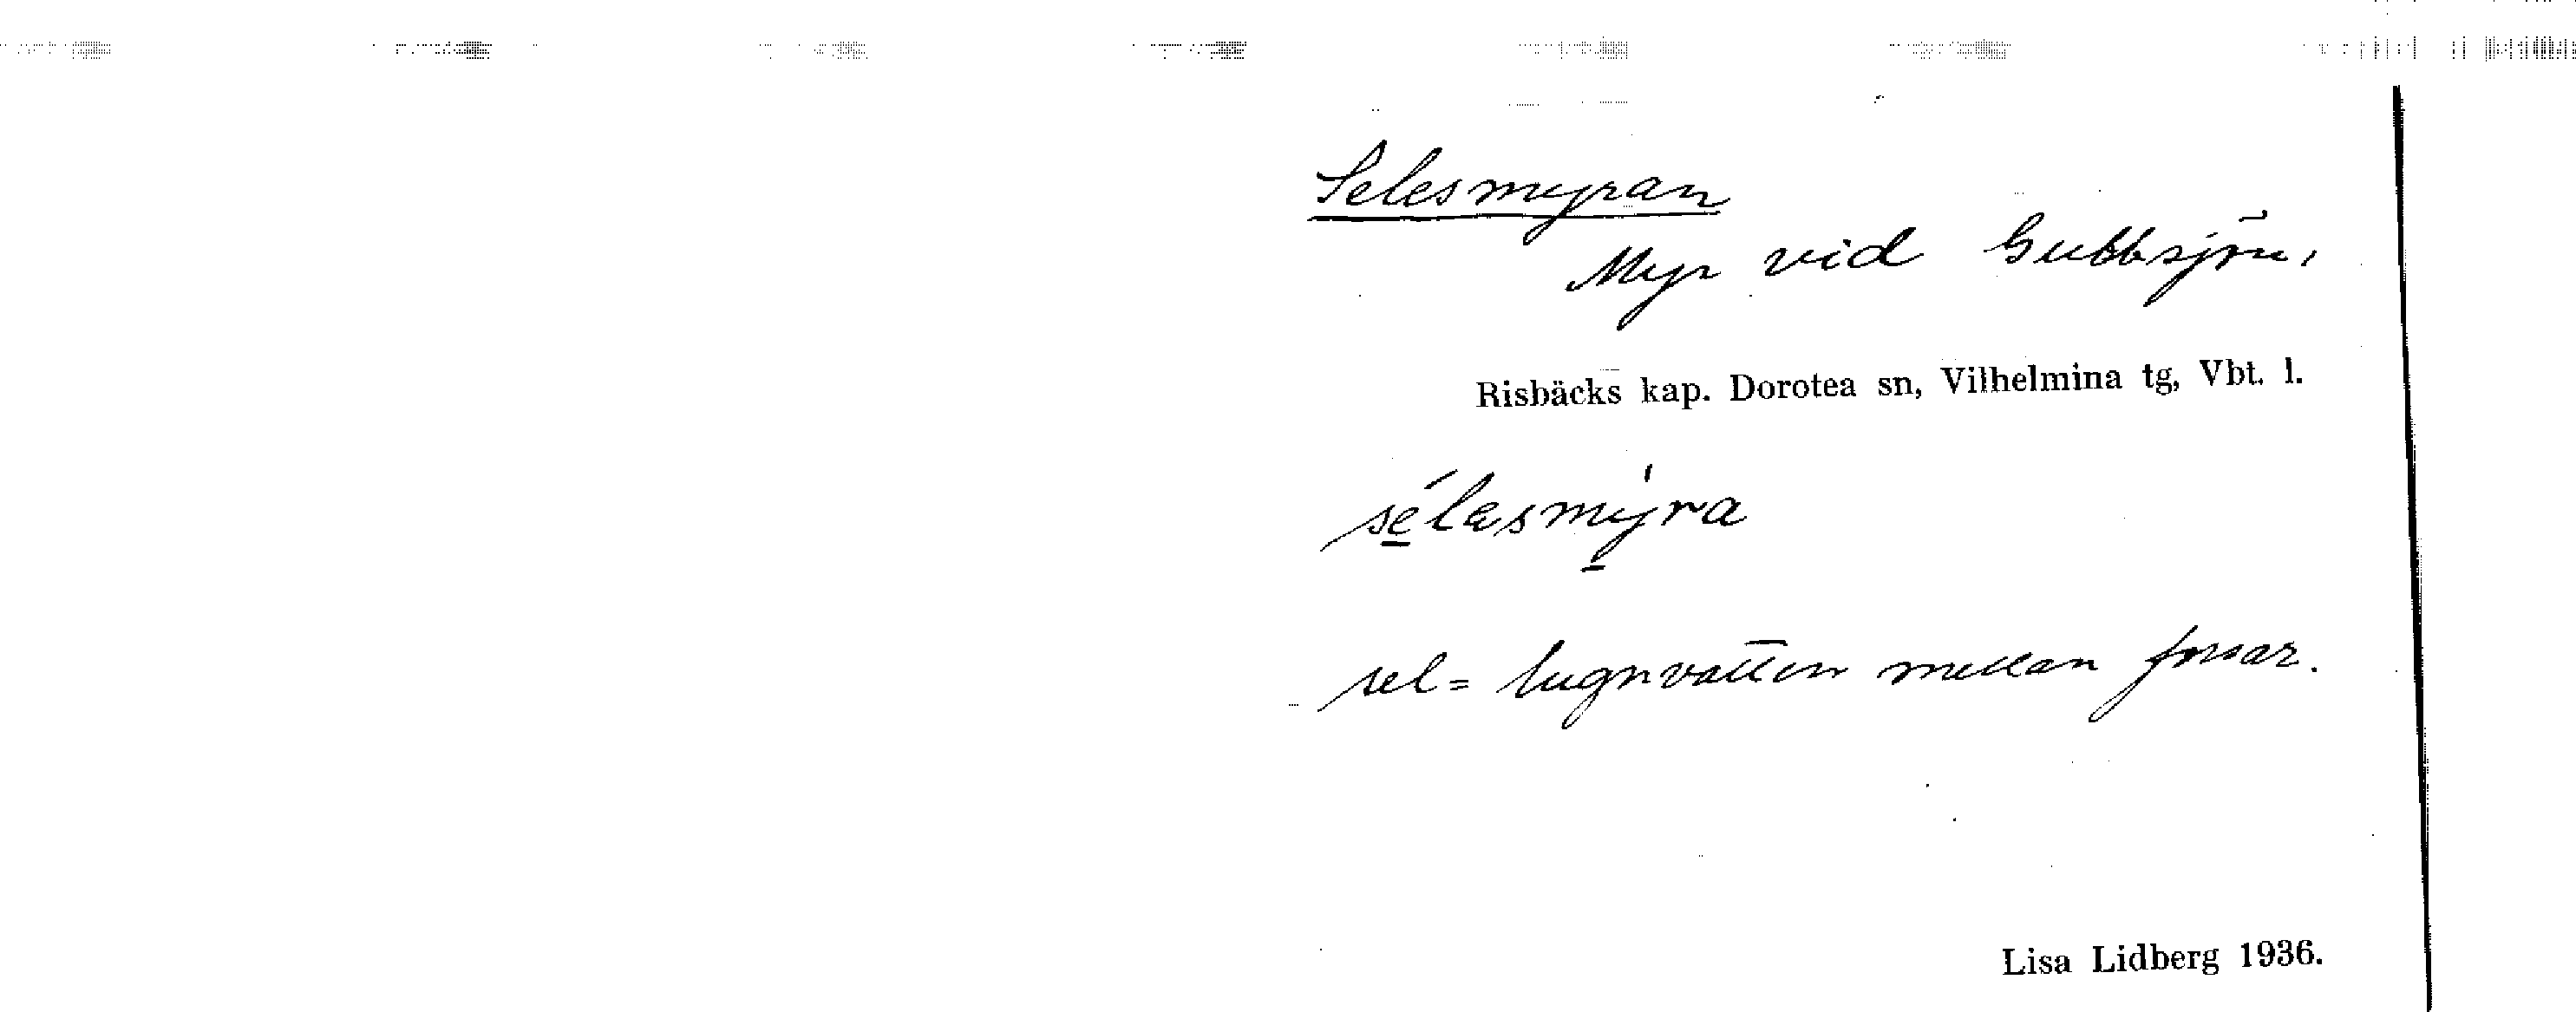 Selesmyran
Myr vid Gubbsjön,
Risbäcks kap. Dorotea sn, Vilhelmina tg, Vbt. l.
sélesmýra
sel = lugnvatten mellan forsar.
Lisa Lidberg 1936.